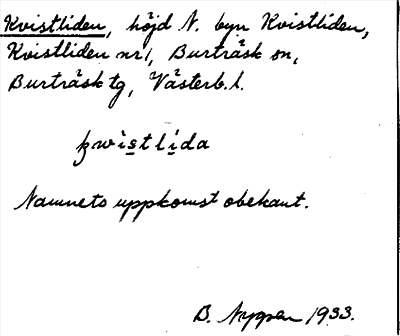 Kvistliden, höjd N. byn Kvistliden,
Kvistliden nr 1, Burträsk sn,
Burträsk tg, Västerb. l.
kwistlida
Namnets uppkomst obekant.
B. 1933.